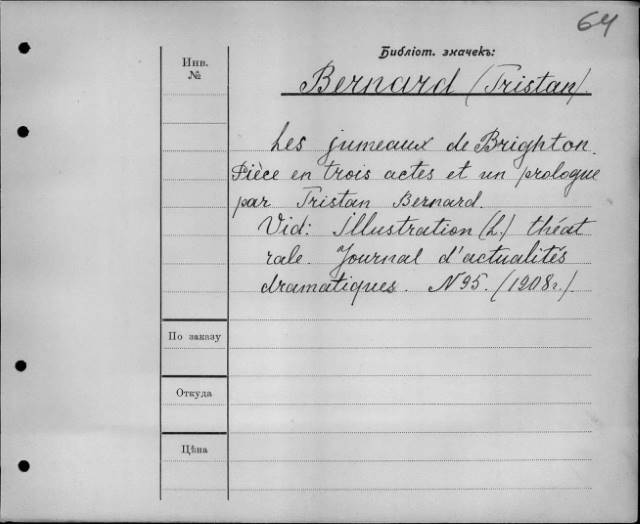 64
Библіот. значекъ:
Инв.
№
Bernard (Tristan).
Les jumeaux de Brighton.
Pièce en trois actes et un prologue
par Tristan Bernard.
Vid: Illustration (L.) théat
rale. Journal d'actualités
dramatiques. N 95. (1908г.).
По заказу
Откуда
Цѣна